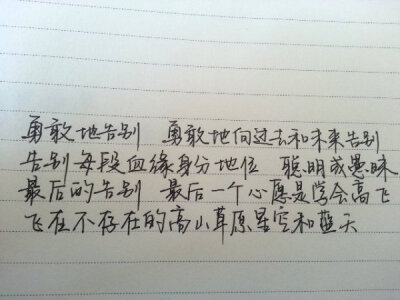 勇敢地告别 勇敢地向过去和未来告别
告别每段血缘身分地位 聪明或愚昧
最后的告别 最后一个心愿是学会高飞
飞在不存在的高山草原星空和蓝天